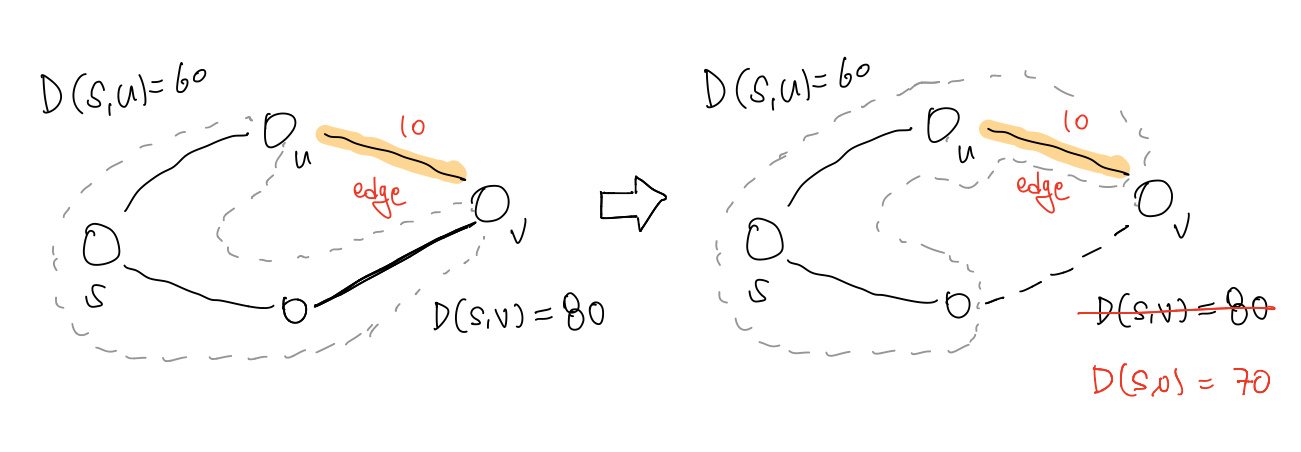 D(s,u)=60
10
u
edge
v
s
D(s,v) = 80
D(s,u)=60
10
u
edge
v
s
D(s,v) = 80
D(s,v) = 70